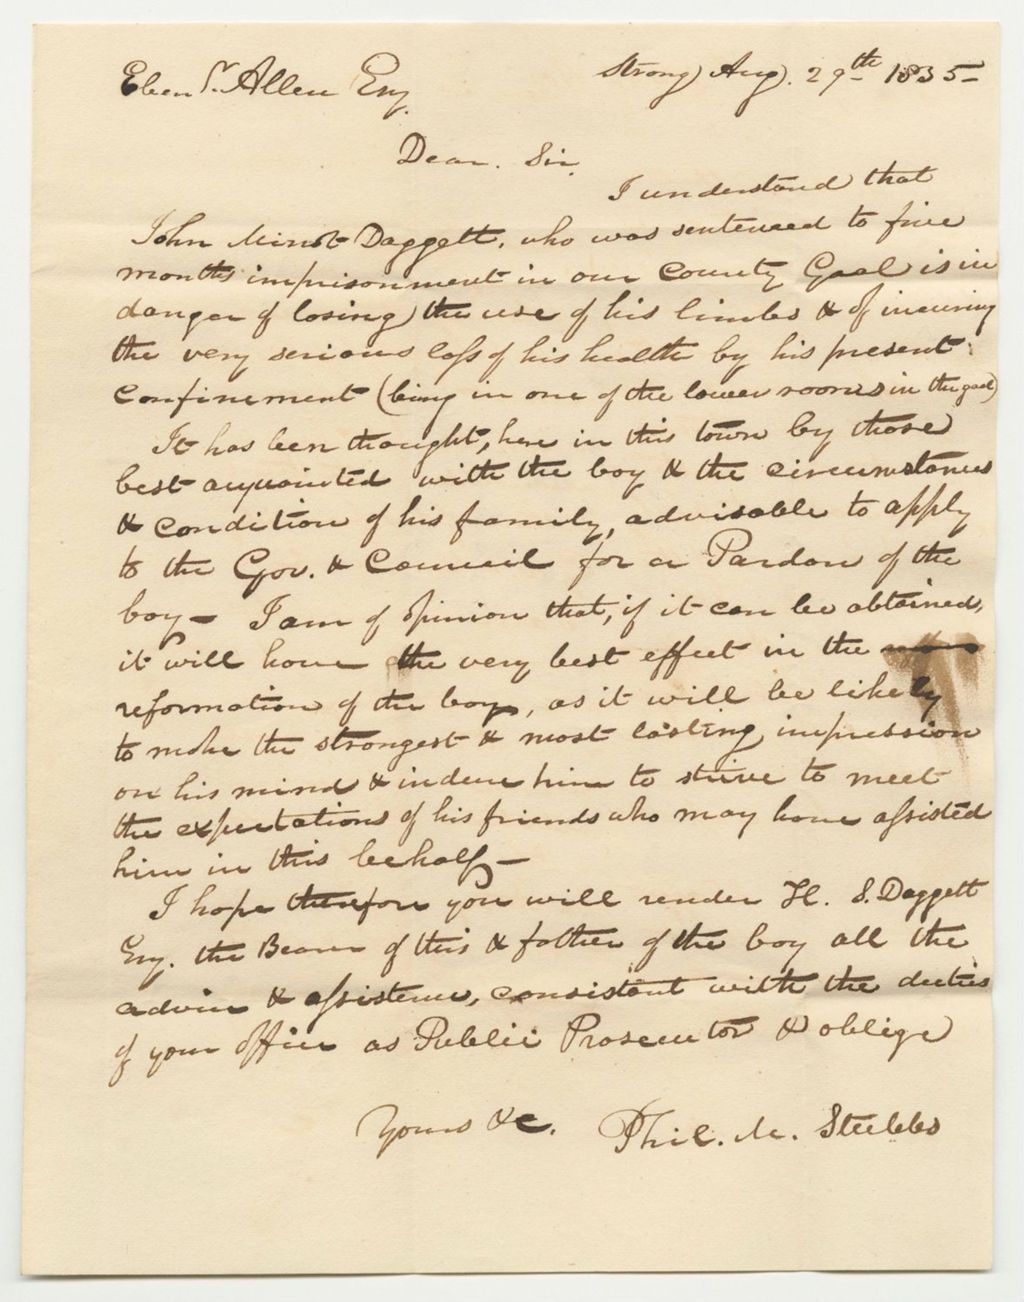 Eben r. Allen Esq.
Strong Aug. 29th 1835-
Dear. Sir,
I understand that
John Minot Daggett, who was sentenced to five
months imprisonment in our County Goal is in
danger of losing the use of his limbs & of incuring
the very serious loss of his health by his present
confinement (being in one of the lower rooms in the goal)
It has been thought, here in this town by those
best acquainted with the boy & the circumstances
& condition of his family, advisable to apply
to the Gov. & Council for a Pardon of the
boy- I am of opinion that, if it can be obtained,
it will have the very best effect in the
reformation of the boy, as it will be likely
to make the strongest & most lasting impression
on his mind & induce him to strive to meet
the expectations of his friends who may have assisted
him in this behalf-
I hope therefore you will render H. S. Daggett
Esq. the Bearer of this & father of the boy all the
advice & assistence, consistant with the duties
of your office as Public Prosecutor & oblige
Yours &c. Phil. M. Stubbs